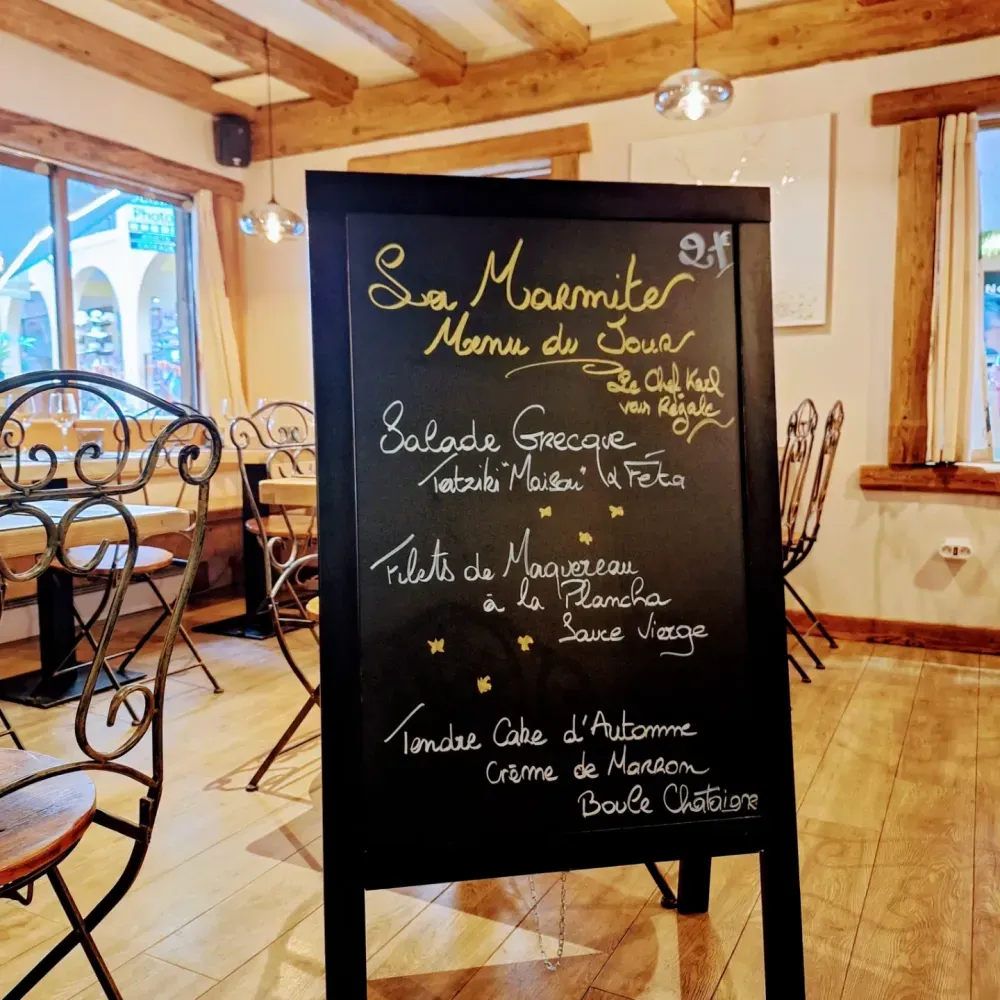 Photo
21€
La Marmite
Menu du Jour
Le Chef Karl
vous Régale
Salade Grecque
Tatziki "Maison" & Féta
Filets de Maquereau
à la Plancha
Sauce Vierge
Tendre Cake d'Automne
Crème de Marron
Boule Chataigne